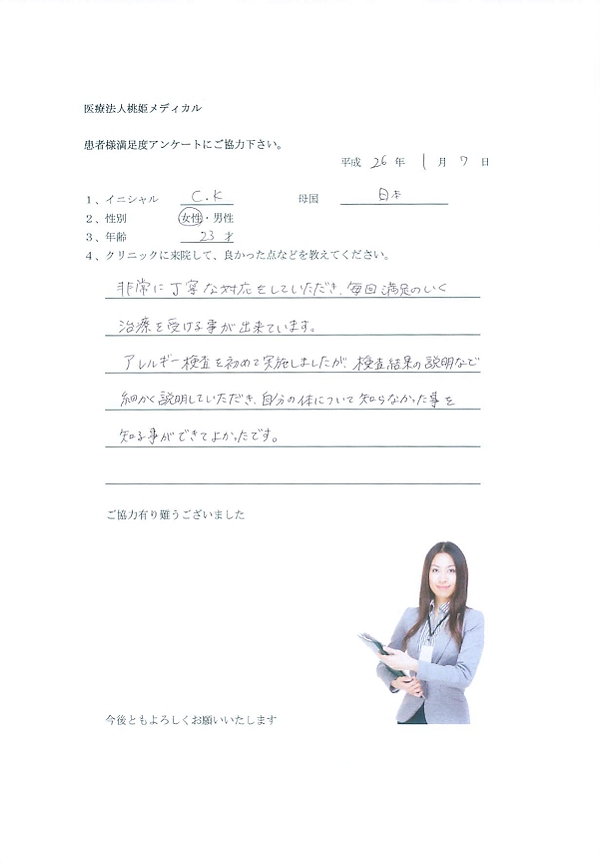 医療法人桃姫メディカル
患者様満足度アンケートにご協力下さい。
平成 26 年 1 月 7 日
1、イニシャル C.K 母国 日本
2、性別 女性・男性
3、年齢 23才
4、クリニックに来院して、良かった点などを教えてください。
非常に丁寧な対応をしていただき、毎回満足のいく
治療を受ける事が出来ています。
アレルギー検査を初めて実施しましたが、検査結果の説明など
細かく説明していただき、自分の体について知らなかった事を
知る事ができてよかったです。
ご協力有り難うございました
今後ともよろしくお願いいたします